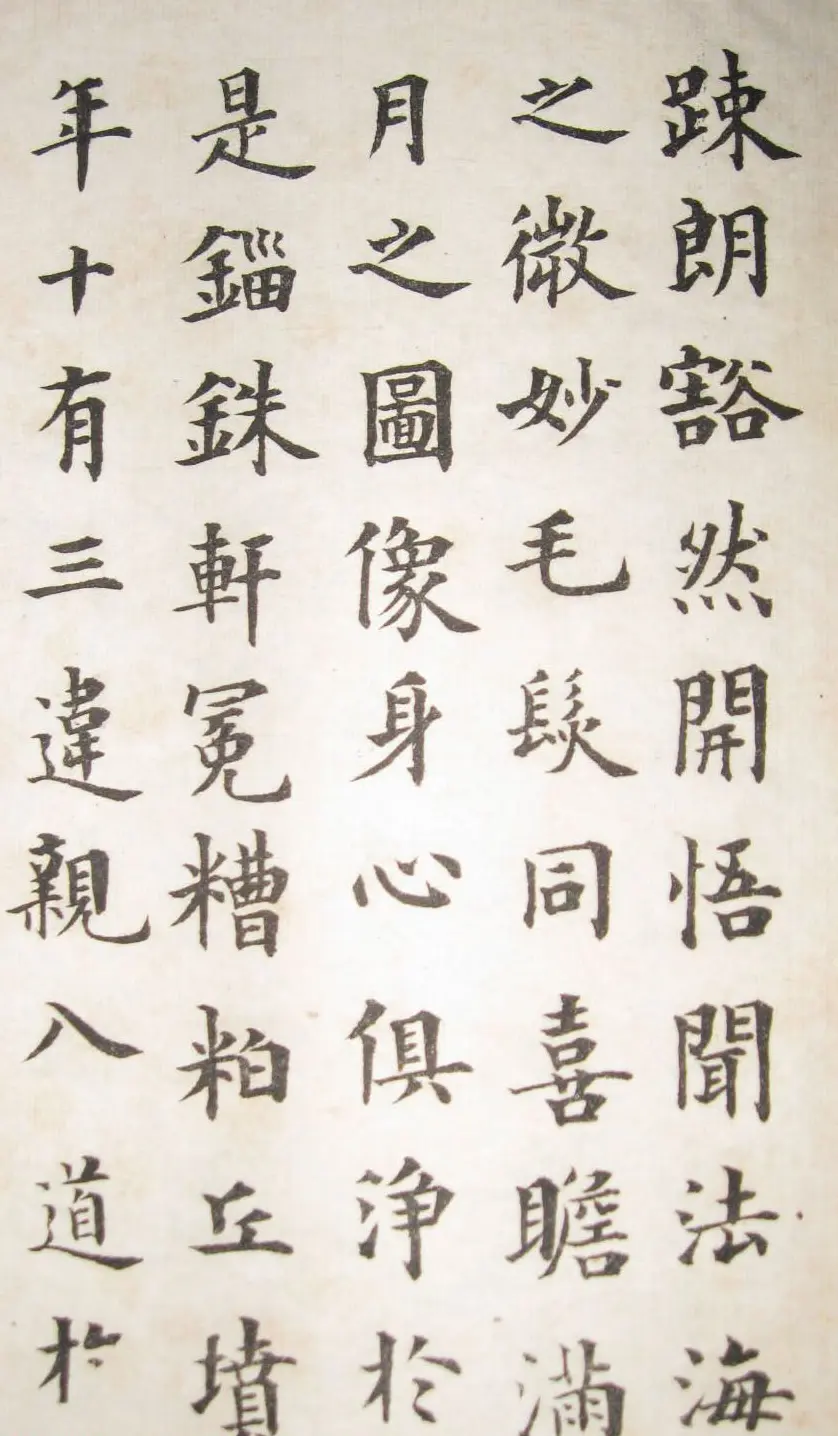 踈朗豁然開悟聞法海
之微妙毛髮同喜瞻滿
月之圖像身心俱淨於
是錙銖軒冕糟粕丘墳
年十有三違親入道於